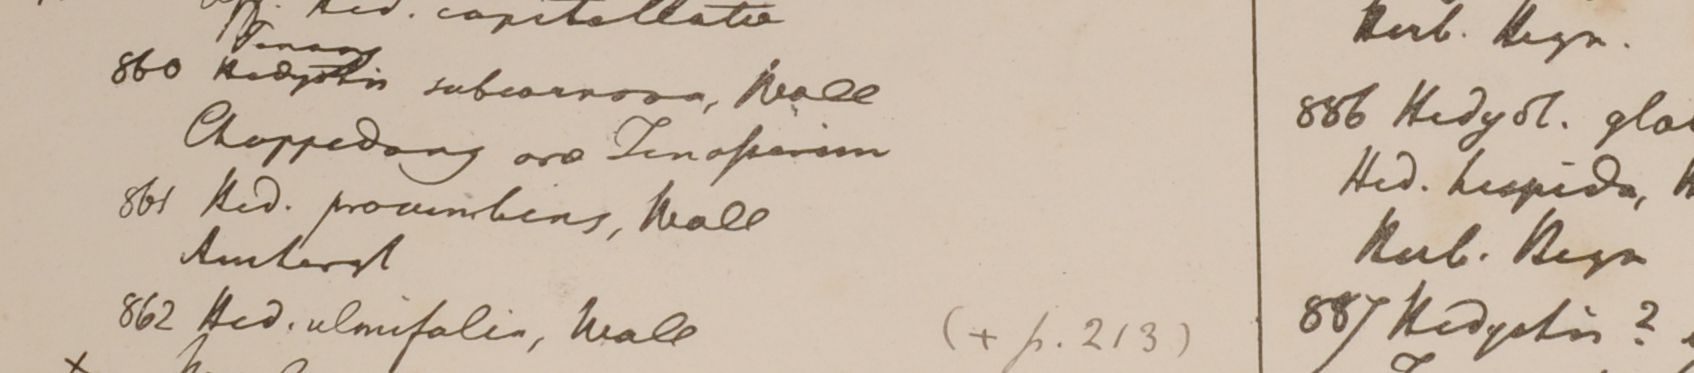 aff. Hed. capitellatæ
Penang
860 Hedyotis subcarnosa, Wall
Choppedong oræ Tenasserim
861 Hed. procumbens, Wall
Amherst
862 Hed. ulmifolia, Wall
(+ p. 213)
Herb. Heyn.
886 Hedyot.
Hed. hispida,
Herb. Heyn
887 Hedyotis ?